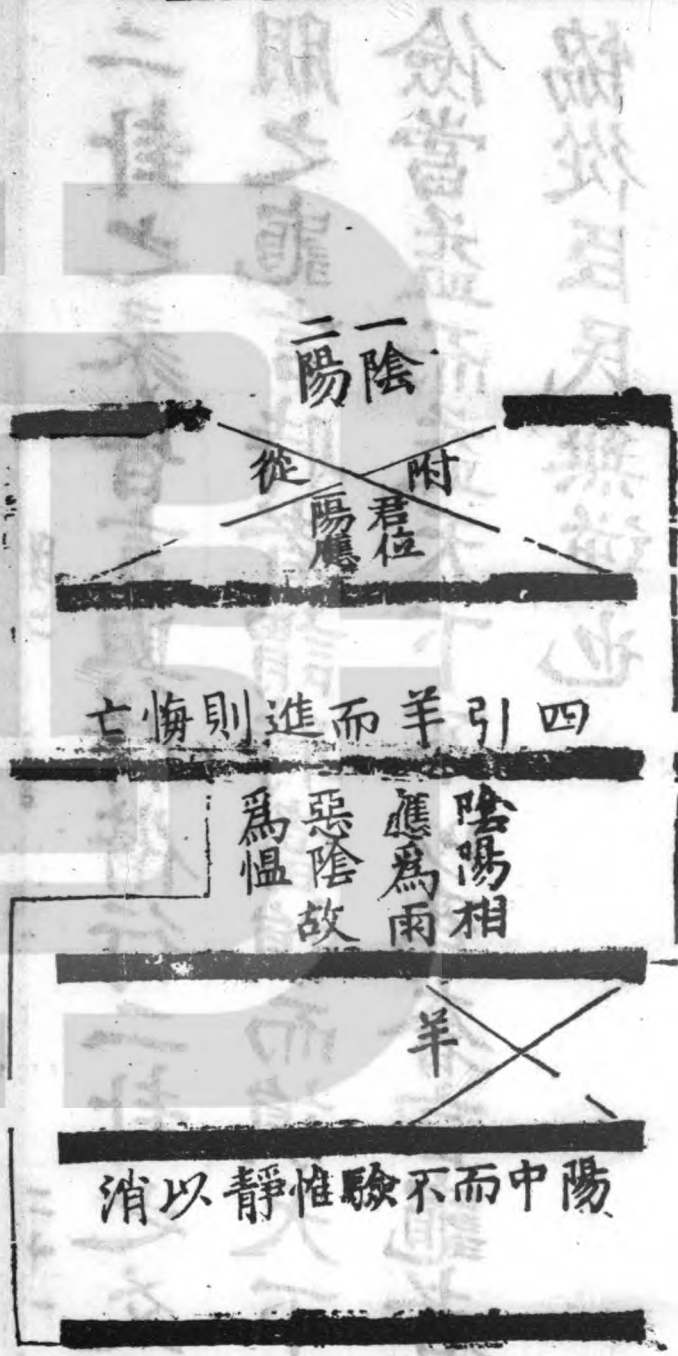 一陰
二陽
附
從
君位
陽應
四引羊而進則悔亡
陰陽相
應爲雨
惡陰故
爲愠
羊
陽中而不驗惟靜以消